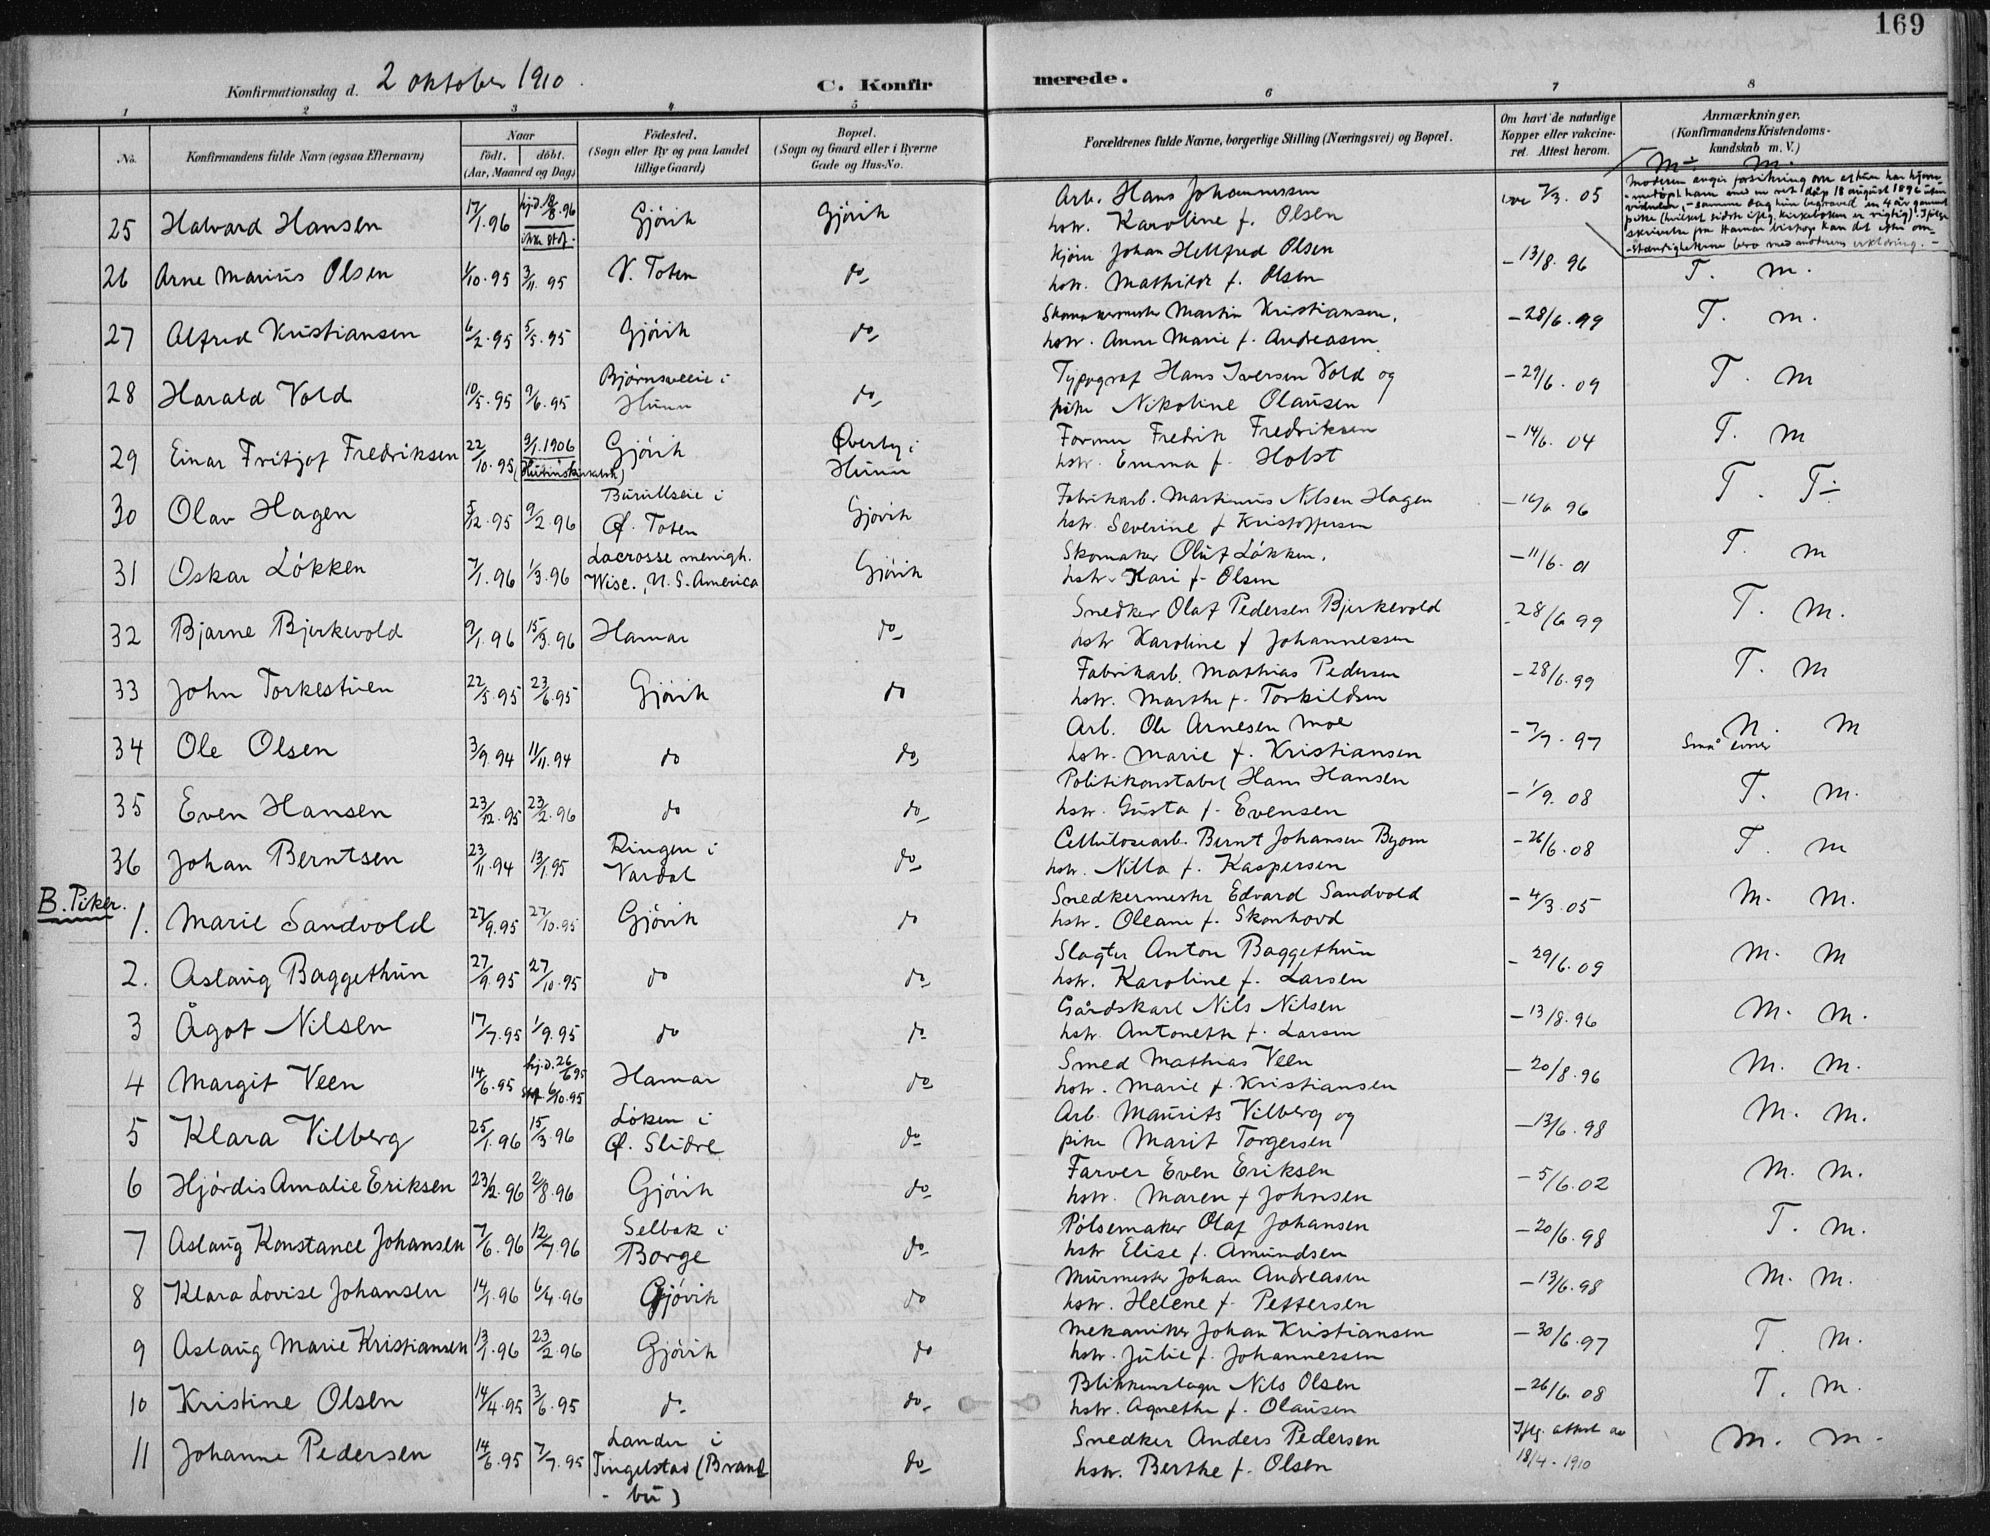 169
Konfirmationsdag d. 2 oktober 1910.
C. Konfirmerede.
1 2 3 4 5 6 7 8
No. Konfirmandens fulde Navn (ogsaa Efternavn) Naar født. døbt. (Aar, Maaned og Dag) Fødested. (Sogn eller By og paa Landet tillige Gaard) Bopæl. (Sogn og Gaard eller i Byerne Gade og Hus-No. Forældrenes fulde Navne, borgerlige Stilling (Næringsvei) og Bopæl. Om havt de naturlige Kopper eller vakcineret. Attest herom. Anmærkninger. (Konfirmandens Kristendomskundskab m. V.)
25 Halvard Hansen 17/1.96 hj.d. 18/8.96 ikke stdf. Gjövik Gjövik Arb. Hans Johannessen
hstr. Karoline f. Olsen 7/3. 05 M÷ M.
26 Arne Marius Olsen 1/10.95 3/11.95 V. Toten do Kjører Johan Hellfred Olsen
hstr. Mathilde f. Olsen - 13/8. 96 T. M.
27 Alfred Kristiansen 6/2.95 5/5.95 Gjövik do Skomakermester Martin Kristiansen.
hstr. Anne Marie f. Andreasen - 28/6.99 T. M.
28 Harald Vold 10/5.95 9/6.95 Bjørnsveeie i
Hunn do Typograf Hans Iversen Vold og
pike Nikoline Olausen - 29/6.09 T. M
29 Einar Fritjof Fredriksen 22/10.95 9/1.1906 Gjövik Øverby i
Hunn Former Fredrik Fredriksen
hstr. Emma f. Holst - 14/6. 04 T. M
30 Olav Hagen 5/12.95 9/2.96 Ø. Toten Gjövik Fabrikarb. Martinius Nilsen Hagen
hstr. Severine f Kristoffersen - 16/6 96 T. T÷
31 Oskar Lökken 7/1.96 1/3.96 Lacrosse menigh.
Wisc., U. S. America Gjövik Skomaker Oluf Lökken.
hstr. Kari f. Olsen - 11/6.01 T. M
32 Bjarne Bjerkevold 9/1.96 15/3.96 Hamar do Snedker Olaf Pedersen Bjerkevold
hstr Karoline f Johannessen 28/6 99 T. M.
33 John Torkestuen 22/5.95 23/6.95 Gjövik do Fabrikarb. Mathias Pedersen
hstr. Marthe f. Torkildsen - 28/6.99 T. M
34 Ole Olsen 3/9.94 11/11.94 do do Arb. Ole Arnesen Moe
hstr. Marie f. Kristiansen - 7/7.97 N. M
Små evner
35 Even Hansen 23/12.95 23/2.96 do do Politikonstabel Hans Hansen
hstr. Gusta f. Evensen - 1/9. 08 T. M.
36 Johan Berntsen 23/11.94 13/1.95 Ringen i
Vardal do Cellulosearb. Bernt Johansen Byom
hstr. Nilla f. Kaspersen - 26/6.08 T. M
B. Piker.
1. Marie Sandvold 27/9.95 27/10.95 Gjövik do Snedkermester Edvard Sandvold
hstr. Oleane f. Skonhovd - 4/3.05 M. M.
2. Aslaug Baggethun 27/9.95 27/10.95 do do Slagter Anton Baggethun
hstr. Karoline f. Larsen - 29/6.09 M. M
3 Ågot Nilsen 17/7.95 1/9.95 do do Gårdskarl Nils Nilsen
hstr. Antonette f. Larsen - 13/8.96 M. M.
4 Margit Veen 14/6.95 hj.d. 26/6 95 stf. 6/10.95 Hamar do Smed Mathias Veen
hstr. Marie f. Kristiansen - 20/8.96 M. M.
5 Klara Vilberg 25/1.96 15/3.96 Løken i
Ø. Slidre do Arb. Maurits Vilberg og
pike Marit Torgersen - 13/6.98 M. M.
6 Hjördis Amalie Eriksen 23/2.96 2/8.96 Gjövik do Farver Even Eriksen
hstr. Maren f Johnsen - 5/6.02 M. M.
7 Aslaug Konstance Johansen 7/6.96 12/7.96 Selbak i
Borge do Pölsemaker Olaf Johansen
hstr Elise f. Amundsen - 20/6.98 T. M.
8 Klara Lovise Johansen 14/1.96 6/4.96 Gjövik do Murmester Johan Andreasen
hstr. Helene f. Pettersen - 13/6.98 M. M.
9 Aslaug Marie Kristiansen 13/1.96 23/2.96 Gjövik do Mekaniker Johan Kristiansen
hstr. Julie f. Johannessen - 30/6.97 T M.
10 Kristine Olsen 14/4.95 3/6.95 do. do Blikkenslager Nils Olsen
hstr. Agnethe f. Olausen - 26/6. 08 T. M.
11 Johanne Pedersen 14/6.95 7/7.95 Lander i
Tingelstad (Brandbu) do Snedker Anders Pedersen
hstr. Berthe f. Olsen Iflg. attest av
18/4. 1910 M. M.